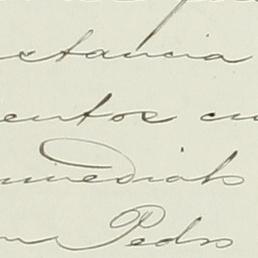 stancia
entos cu
mmediato
Pedro